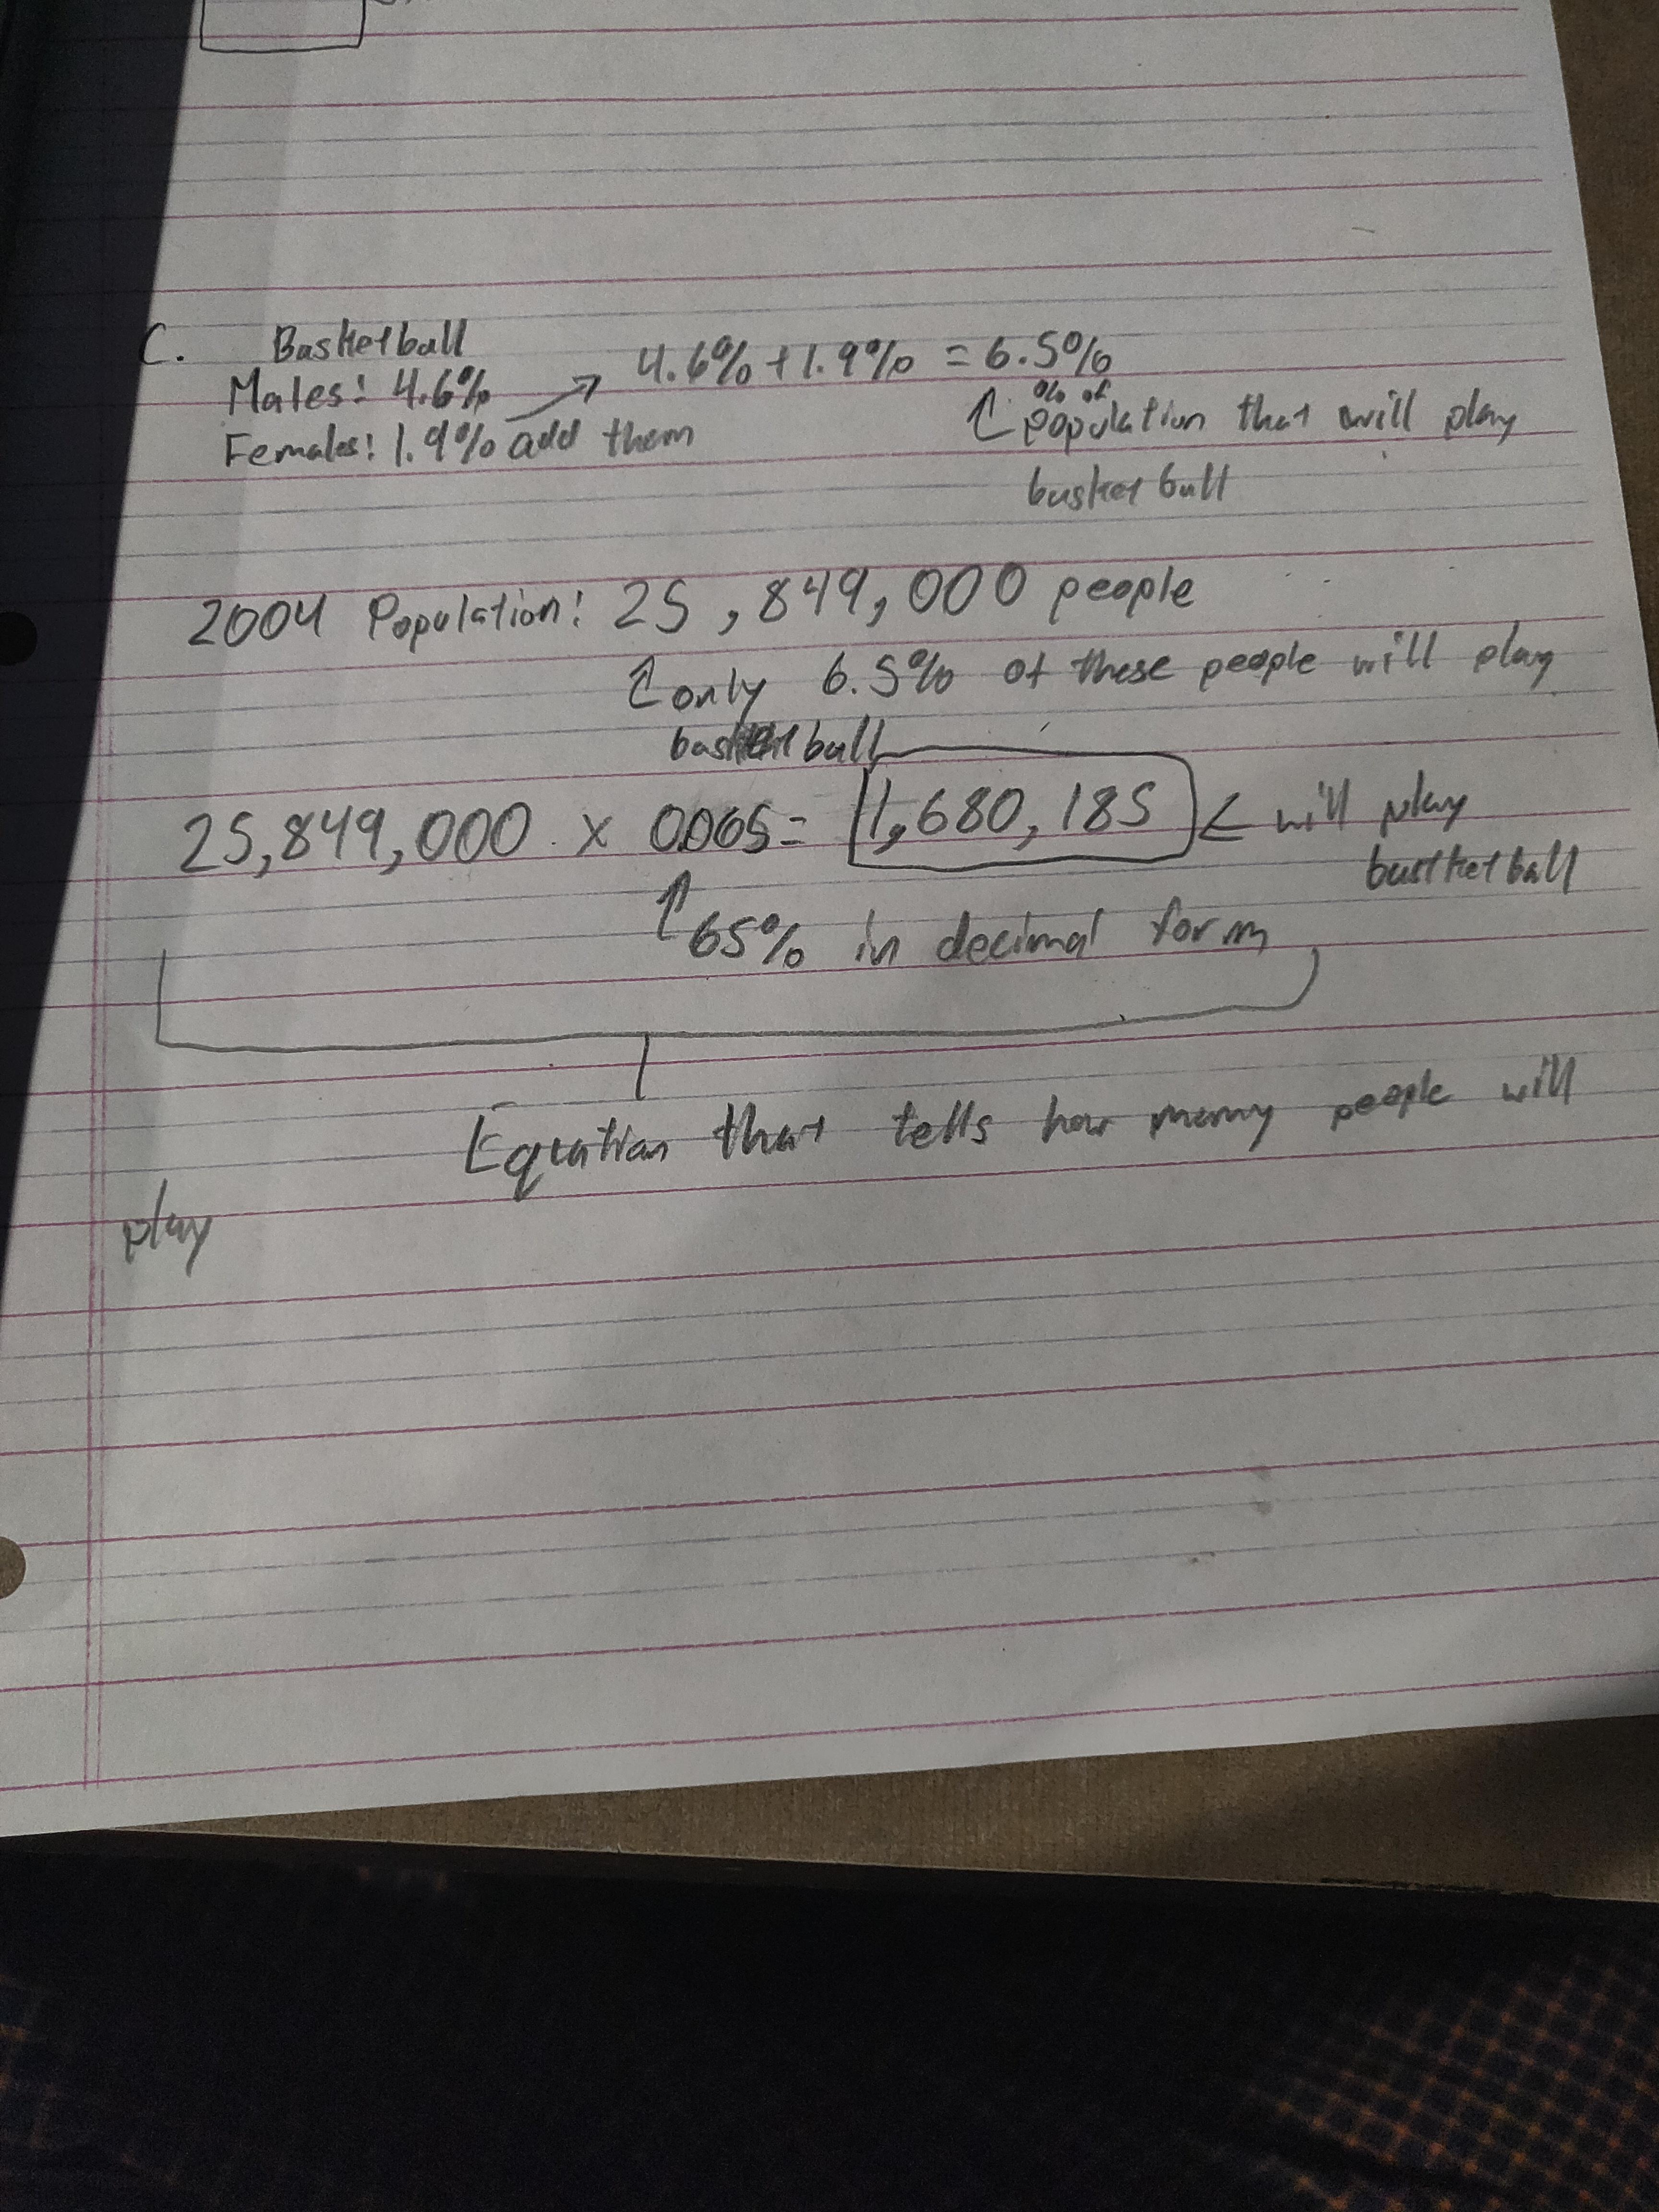 C. Basketball
Males: 4.6% 4.6% + 1.9% = 6.5%
Females: 1.9% add them
↑ % of population that will play
basketball
2004 Population: 25,849,000 people
↑ only 6.5% of these people will play
basketball
25,849,000 x 0.065 = 1,680,185 ← will play
bastketball
↑ 65% in decimal form
Equation that tells how many people will
play